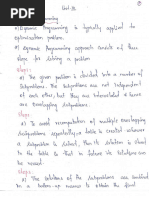 Unit-III
Dynamic Programming
*) Dynamic Programming is typically applied to
optimization problem.
*) Dynamic Programming approach consists of three
steps for solving a problem
Step1:
*) The given problem is divided into a number of
Subproblems. The Subproblems are not independent
of each other, but they are interrelated & hence are
overlapping Subproblems.
Step2:
*) To avoid recomputation of multiple overlapping
Subproblems repeatedly, a table is created whenever
a Subproblem is solved, then its solution is stored
in the table so that its solution can
be reused.
Step3:
*) The solutions of the Subproblems are combined
in a bottom-up manner to obtain the final